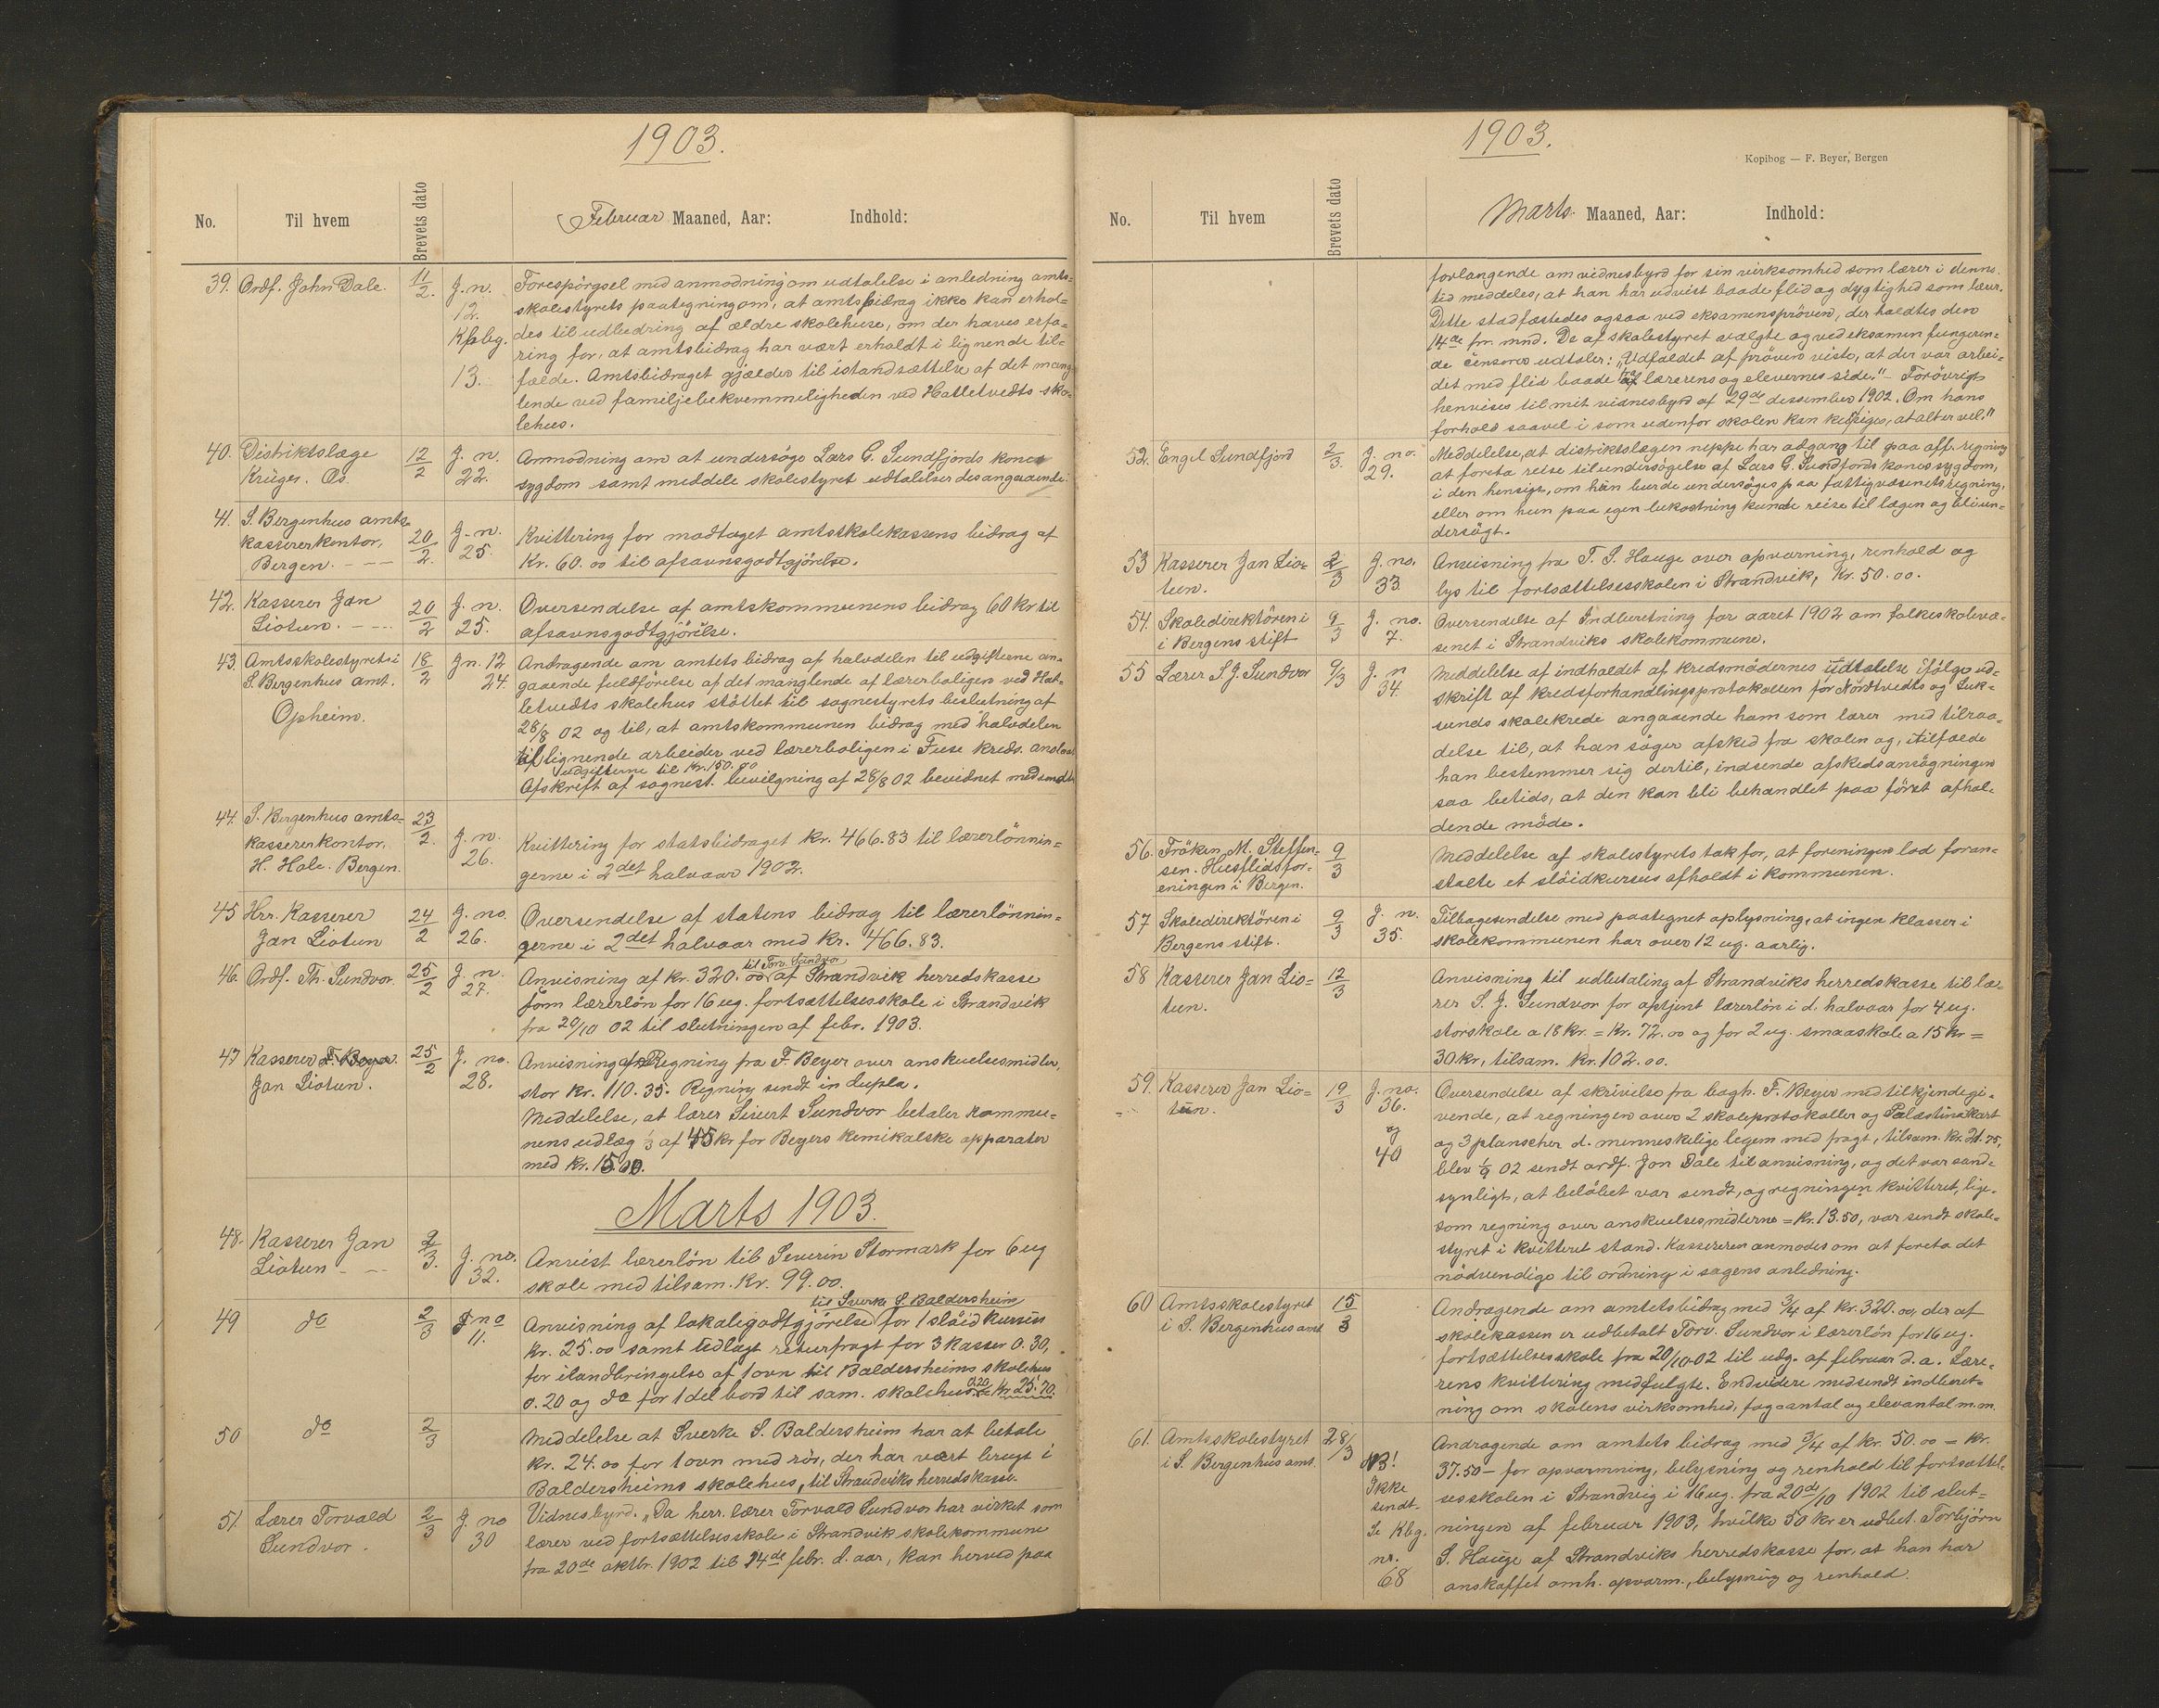 1903.
No.
Til hvem
Brevets dato
Februar Maaned, Aar: Indhold:
39. Ordf. John Dale. 11/2. J. n. 12. Kpbg. 13.
Forespörgsel med anmodning om udtalelse i anledning amts-
skolestyrets paategning om, at amtsbidrag ikke kan erhol-
des til udbedring af ældre skolehuse, om der haves erfa-
ring for, at amtsbidrag har vært erholdt i lignende til-
fælde. Amtsbidraget gjælder til istandsættelse af det mang-
lende ved familjebekvemmeligheden ved Hatletvedts sko-
lehus.
40. Distriktslæge Krüger. Os. 12/2 J. n. 22.
Anmodning om at undersöge Lars G. Sundfjords kones
sygdom samt meddele skolestyret udtalelser desangaaende.
41. S. Bergenhus amts-
kassererkontor,
Bergen. - — — 20/2. J. n. 25.
Kvittering for modtaget amtsskolekassens bidrag af
Kr. 60.00 til afsavnsgodtgjörelse.
42. Kasserer Jan
Liotun. - — - 20/2 J. n. 25.
Oversendelse af amtskommunens bidrag 60 kr til
afsavnsgodtgjörelse.
43. Amtsskolestyret i
S. Bergenhus amt.
Opheim. 18/2 Jn. 12 24.
Andragende om amtets bidrag af halvdelen til udgifterne an-
gaaende fuldförelse af det manglende af lærerboligen ved Hat-
letvedts skolehus stöttet til sognestyrets beslutning af
28/8 02 og til, at amtskommunen bidrog med halvdelen
til lignende arbeider ved lærerboligen i Fuse kreds.
udgifterne til Kr. 150.00
Afskrift af sognest. bevilgning af 28/8 02 bevidnet medsendte
44. S. Bergenhus amts-
kassererkontor.
H. Hale. Bergen. 23/2. J. n. 26.
Kvittering for statsbidraget kr. 466.83 til lærerlönnin-
gerne i 2det halvaar 1902.
45 Hrr. Kasserer
Jan Liotun 24/2 J. no. 26.
Oversendelse af statens bidrag til lærerlönnin-
gerne i 2det halvaar med kr. 466.83.
46. Ordf. Th. Sundvor. 25/2 J. n. 27.
til Torv. Sundvor
Anvisning af kr. 320.00 af Strandvik herredskasse
som lærerlön for 16 ug. fortsættelsesskole i Strandvik
fra 20/10 02 til slutningen af febr. 1903.
47 Kasserer F. Beyer.
Jan Liotun. 25/2 J. no. 28.
Anvisning Regning fra F. Beyer over anskuelsesmidler,
stor kr. 110.35. Regning sendt in dupla.
Meddelelse, at lærer Sivert Sundvor betaler kommu-
nens udlæg 1/3 af 45 kr for Beyers kemikalske apparater
med kr. 15.00.
Marts 1903.
48. Kasserer Jan
Liotun - — 2/3. J. no. 32.
Anvist lærerlön til Severin Stormark for 6 ug
skole med tilsam. Kr. 99.00.
49 do 2/3 J no 11.
til Sverke S. Baldersheim
Anvisning af lokalegodtgjörelse for 1 slöid kursus
kr. 25.00 samt udlagt returfragt for 3 kasser 0.30,
for ilandbringelse af 1 ovn til Baldersheims skolehus
0.20 og do for 1 del bord til sam. skolehus 0.20 = Kr 25.70.
50 do 2/3
Meddelelse at Sverke S. Baldersheim har at betale
kr. 24.00 for 1 ovn med rör, der har vært brugt i
Baldersheims skolehus, til Strandviks herredskasse.
51. Lærer Torvald
Sundvor. 2/3 J. no 30
Vidnesbyrd. „Da herr. lærer Torvald Sundvor har virket som
lærer ved fortsættelsesskole i Strandvik skolekommune
fra 20de oktbr. 1902 til 14de febr. d. aar, kan herved paa
1903.
Kopibog — F. Beyer, Bergen
No.
Til hvem
Brevets dato
Marts Maaned, Aar: Indhold:
forlangende om vidnesbyrd for sin virksomhed som lærer i denne
tid meddeles, at han har udvist baade flid og dygtighed som lærer.
Dette stadfæstedes ogsaa ved eksamenspröven, der holdtes den
14de fm. mnd. De af skolestyret valgte og ved eksamen fungeren-
de censores udtaler: „Udfaldet af pröven viste, at der var arbei-
det med flid baade fra lærerens og elevernes side." – Forövrigt
henvises til mit vidnesbyrd af 29de dessember 1902. Om hans
forhold saavel i som udenfor skolen kan kun siges, at alt er vel."
52. Engel Sundfjord 2/3. J. no. 29.
Meddelelse, at distriktslægen neppe har adgang til paa off. regning
at foreta reise til undersögelse af Lars G. Sundfjords kones sygdom,
i den hensigt, om hun burde undersöges paa fattigvæsenets regning,
eller om hun paa egen bekostning kunde reise til lægen og bli un-
dersögt.
53 Kasserer Jan Lio-
tun. 2/3 J. no. 33.
Anvisning fra T. S. Hauge over opvarmning, renhold og
lys til fortsættelsesskolen i Strandvik, Kr. 50.00.
54. Skoledirektören i
i Bergens stift 9/3 J. no. 7.
Oversendelse af Indberetning for aaret 1902 om folkeskolevæ-
senet i Strandviks skolekommune.
55 Lærer S J. Sundvor 9/3 J. n 34.
Meddelelse af indholdet af kredsmödernes udtalelse ifölge ud-
skrift af kredsforhandlingsprotokollen for Nordtvedts og Suk-
sunds skolekreds angaaende ham som lærer med tilraa-
delse til, at han söger afsked fra skolen og, i tilfælde
han bestemmer sig dertil, indsende afskedsansögningen
saa betids, at den kan bli behandlet paa först afhol-
dende möde.
56. Fröken M. Steffen-
sen. Husflidsfor-
eningen i Bergen. 9/3
Meddelelse af skolestyrets tak for, at foreningen lod foran-
stalte et slöidkursus afholdt i kommunen.
57 Skoledirektören i
Bergens stift. 9/3 J. n. 35.
Tilbagesendelse med paategnet oplysning, at ingen klasser i
skolekommunen har over 12 ug. aarlig.
58 Kasserer Jan Lio-
tun. 12/3
Anvisning til udbetaling af Strandviks herredskasse til læ-
rer S. J. Sundvor for optjent lærerlön i d. halvaar for 4 ug.
storskole a 18 kr. = Kr. 72.00 og for 2 ug. smaaskole a 15 kr =
30 kr, tilsam. kr. 102.00.
59. Kasserer Jan Lio-
tun. 19/3 J. no. 36. og 40
Oversendelse af skrivelse fra bogh. F. Beyer med tilkjendegi-
vende, at regningen over 2 skoleprotokoller og Palæstinakart
og 3 planscher d. menneskelige legem med fragt, tilsam. kr. 21.75,
blev 1/9 02 sendt ordf. Jon Dale til anvisning, og det var sand-
synligt, at belöbet var sendt, og regningen kvitteret, lige-
som regning over anskuelsesmidlerne = Kr. 13.50, var sendt skole-
styret i kvitteret stand. Kassereren anmodes om at foreta det
nödvendige til ordning i sagens anledning.
60 Amtsskolestyret
i S. Bergenhus amt 15/3
Andragende om amtets bidrag med 3/4 af kr. 320.00, der af
skolekassen er udbetalt Torv. Sundvor i lærerlön for 16 ug.
fortsættelsesskole fra 20/10-02 til udg. af februar d.a. Lære-
rens kvittering medfulgte. Endvidere medsendt indberet-
ning om skolens virksomhed, fag-antal og elevantal m.m.
61. Amtsskolestyret
i S. Bergenhus amt. 28/3 NB! Ikke sendt. Se Kbg. nr. 68
Andragende om amtets bidrag med 3/4 af kr. 50.00 = kr.
37.50 – for opvarmning, belysning og renhold til fortsættel-
sesskolen i Strandvig i 16 ug. fra 20de/10 1902 til slut-
ningen af februar 1903, hvilke 50 kr er udbet. Torbjörn
S. Hauge af Strandviks herredskasse for, at han har
anskaffet omh. opvarm., belysning og renhold.